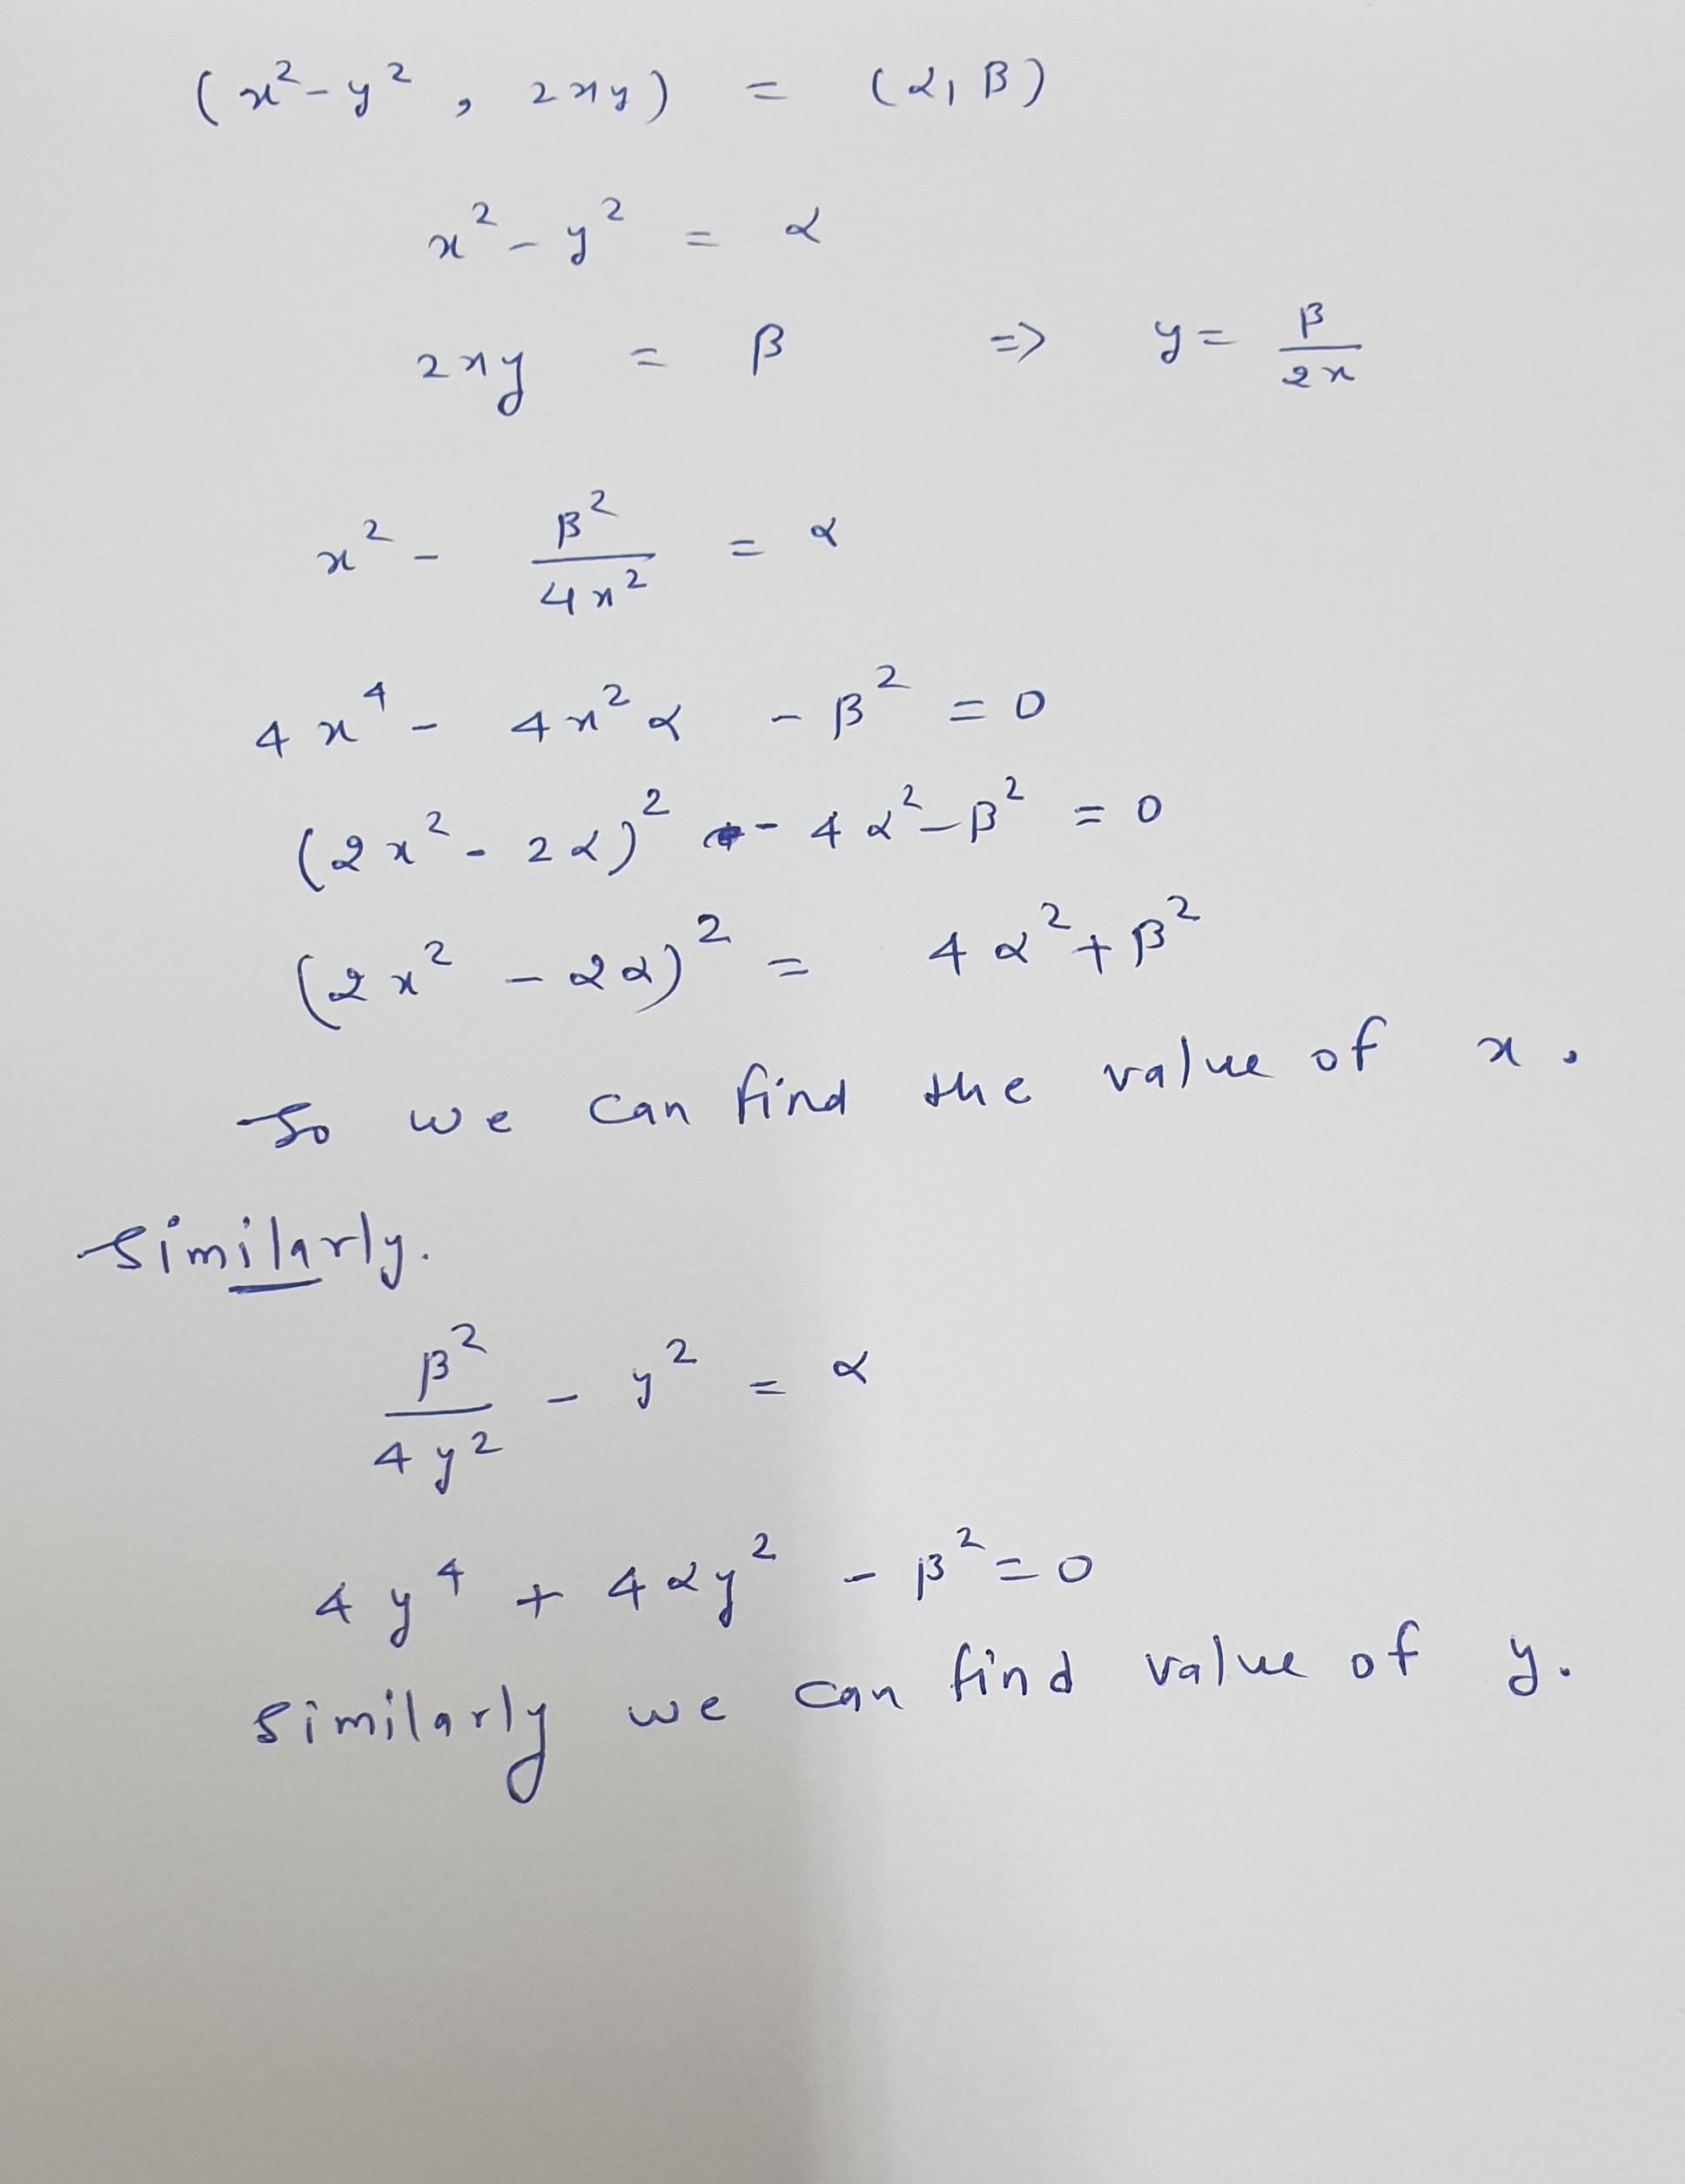 (x² - y², 2xy) = (α, β)
x² - y² = α
2xy = β => y = β/2x
x² - β²/4x² = α
4x⁴ - 4x²α - β² = 0
(2x² - 2α)² - 4α² - β² = 0
(2x² - 2α)² = 4α² + β²
So we can find the value of x.
Similarly.
β²/4y² - y² = α
4y⁴ + 4αy² - β² = 0
Similarly we can find value of y.